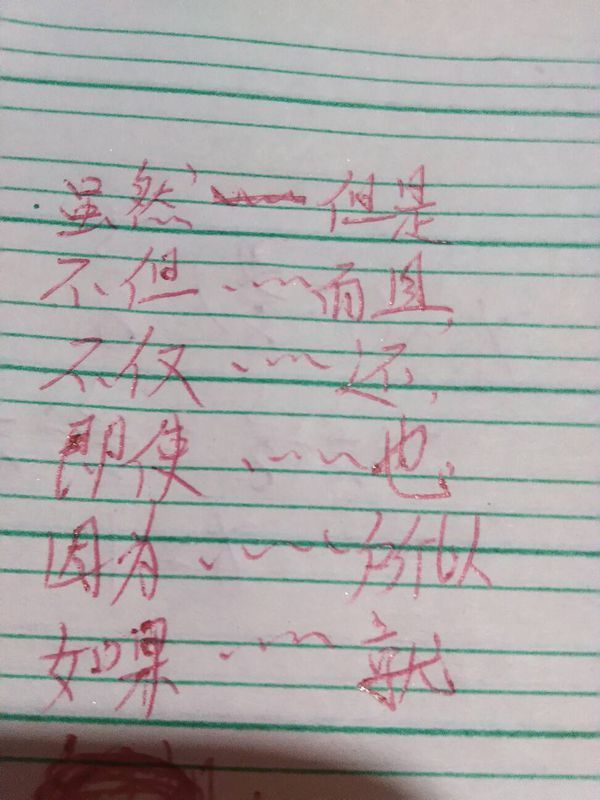 虽然——但是
不但……而且
不仅……还
即使……也
因为……所以
如果……就